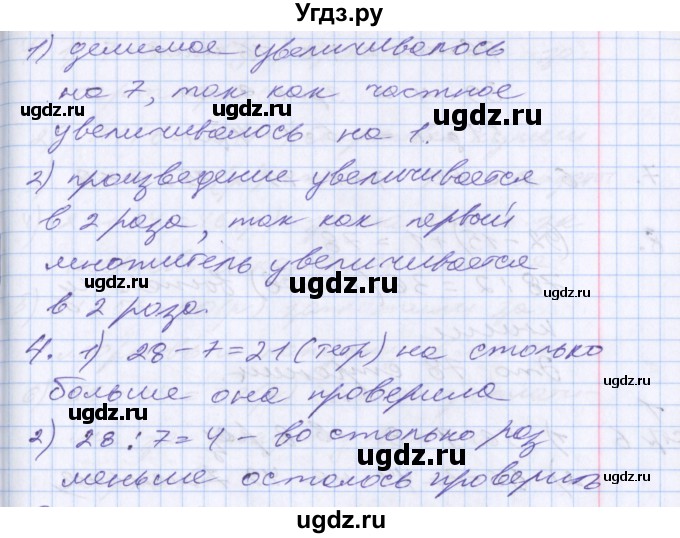 Угдз.ру
1) делимое увеличивалось
на 7, так как частное
увеличивалось на 1.
2) произведение увеличивается
в 2 раза, так как первый
множитель увеличивается
в 2 раза.
4. 1) 28 – 7 = 21 (тетр) на столько
больше она проверила
2) 28 : 7 = 4 – во столько раз
меньше осталось проверить
ugdz.ru
ugdz.ru
ugdz.ru
ugdz.ru
ugdz.ru
ugdz.ru
ugdz.ru
ugdz.ru
ugdz.ru
ugdz.ru
ugdz.ru
ugdz.ru